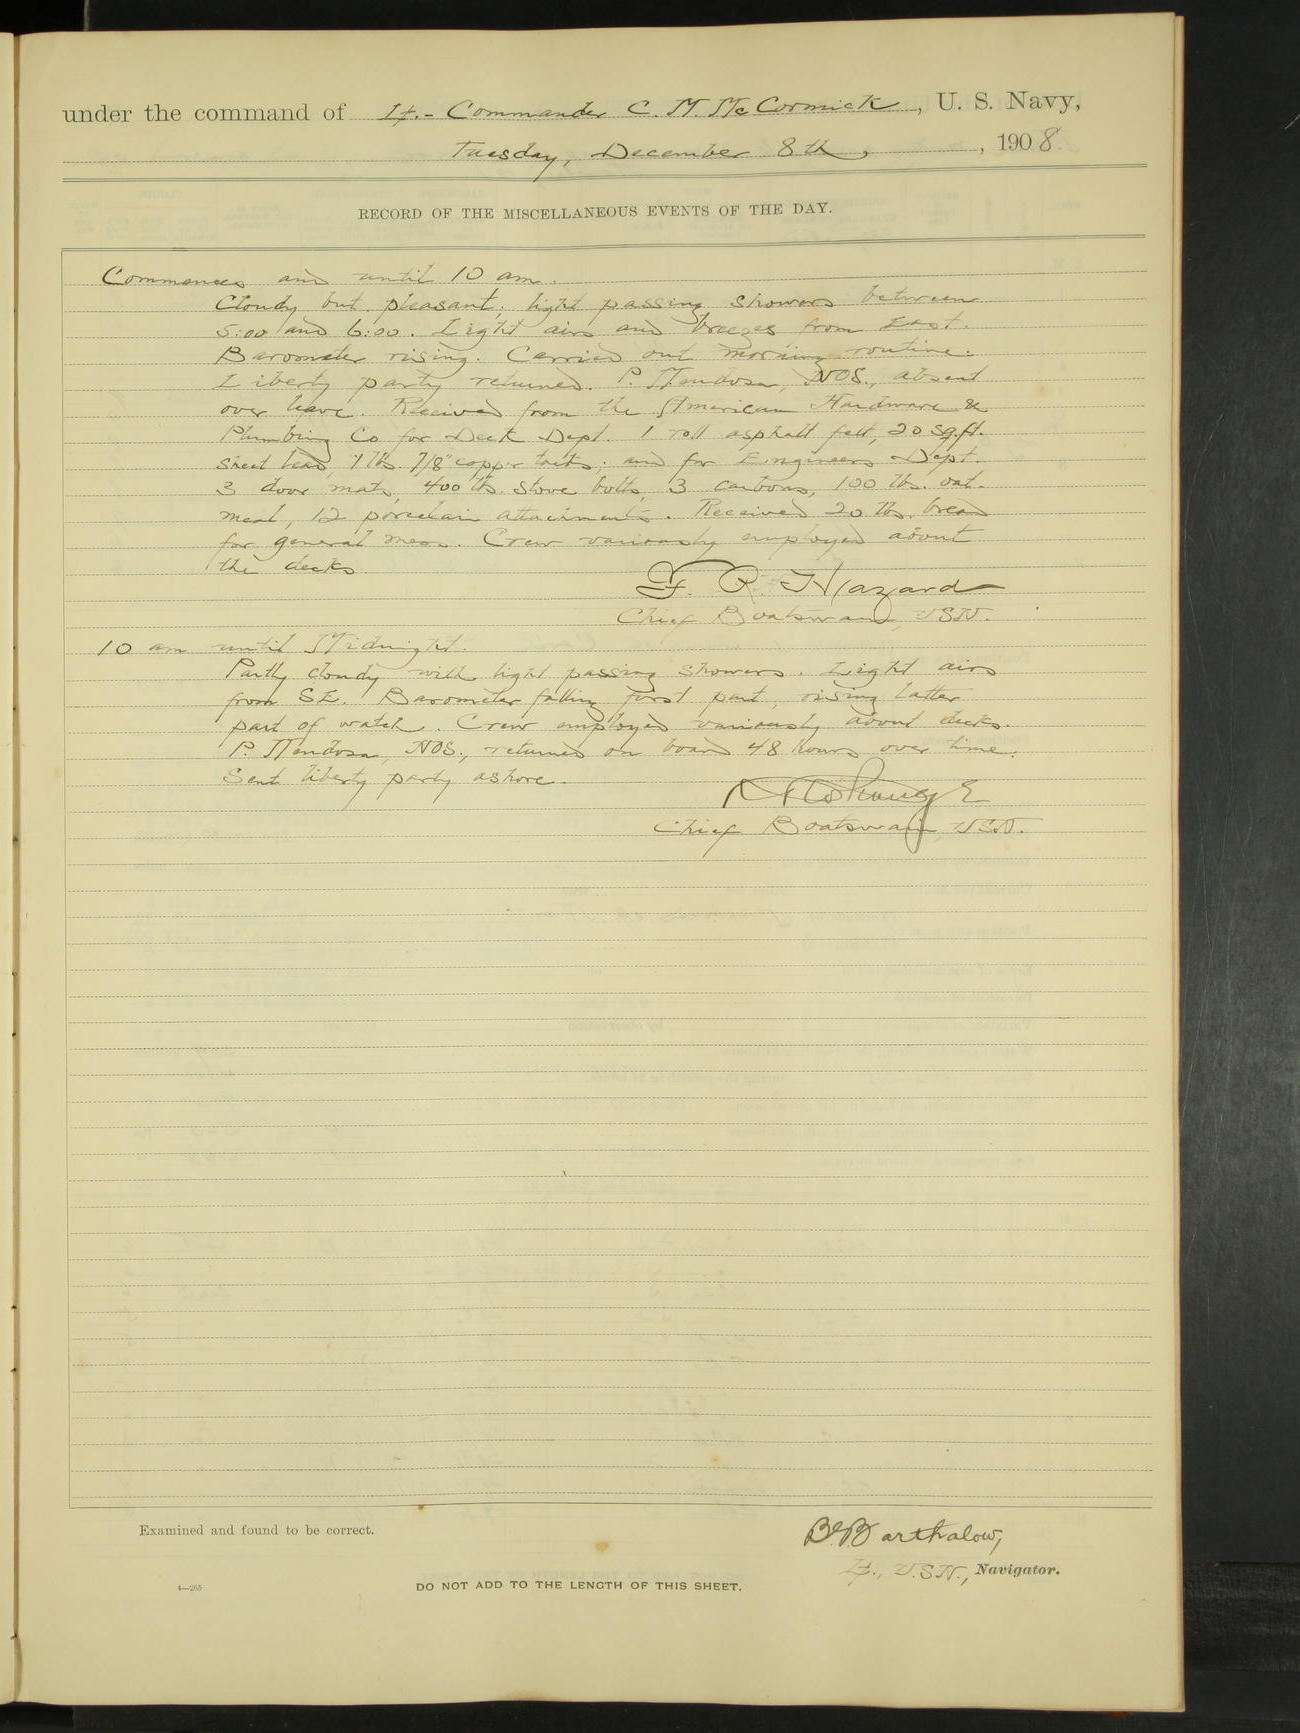 under the command of Lt.- Commander C. M. McCormick, U. S. Navy,
Tuesday, December 8th, , 1908
RECORD OF THE MISCELLANEOUS EVENTS OF THE DAY.
Commences and until 10 am.
Cloudy but pleasant; light passing showers between
5:00 and 6:00. Light airs and breezes from East.
Barometer rising. Carried out morning routine.
Liberty party returned. P. Mendosa, NOS., absent
over leave. Received from the American Hardware &
Plumbing Co for Deck Dept. 1 roll asphalt felt, 20 sq.ft.
sheet lead, 1 lb. 7/8" copper tacks; and for Engineers Dept.
3 door mats, 400 lbs. stove bolts, 3 carbons, 100 lbs. oat-
meal, 12 porcelain attachments. Received 20 lbs. bread
for general mess. Crew variously employed about
the decks
F. R. Hazard
Chief Boatswain, USN.
10 am until Midnight.
Partly cloudy with light passing showers. Light airs
from SE. Barometer falling first part, rising latter
part of watch. Crew employed variously about decks.
P. Mendosa, NOS., returned on board 48 hours over time.
Sent liberty party ashore.
Chief Boatswain, USN.
Examined and found to be correct.
Barthalow,
Lt., U.S.N., Navigator.
4—265
DO NOT ADD TO THE LENGTH OF THIS SHEET.